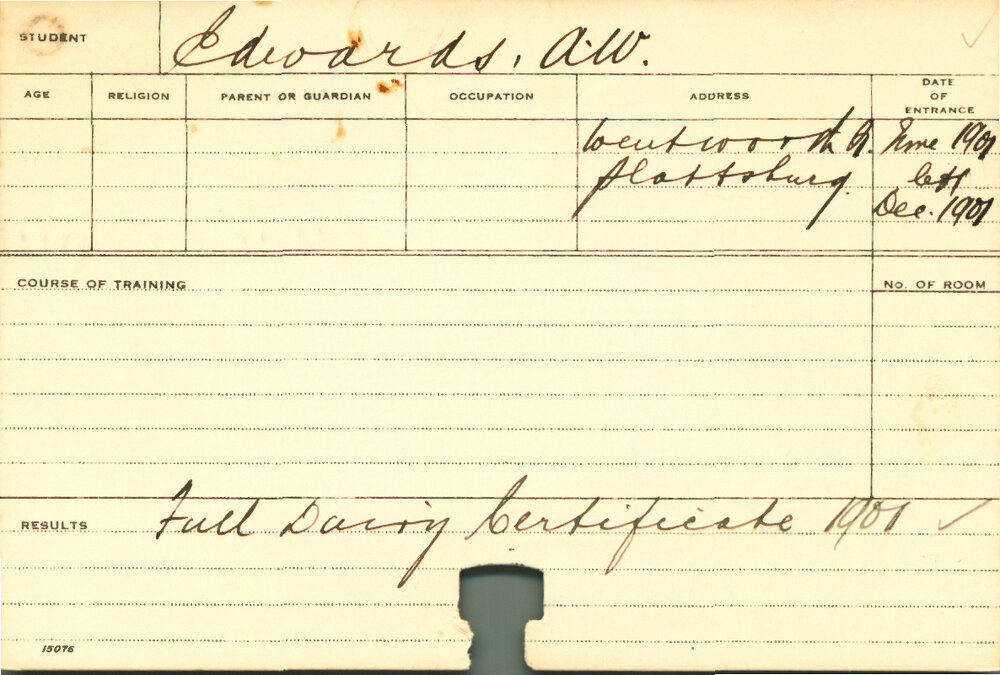 STUDENT Edwards, A.W.
AGE RELIGION PARENT OR GUARDIAN OCCUPATION ADDRESS DATE OF ENTRANCE
Wentworth June 1901
Plattsburg
Dec. 1901
COURSE OF TRAINING No. OF ROOM
RESULTS Full Dairy Certificate 1901 ✓
15076